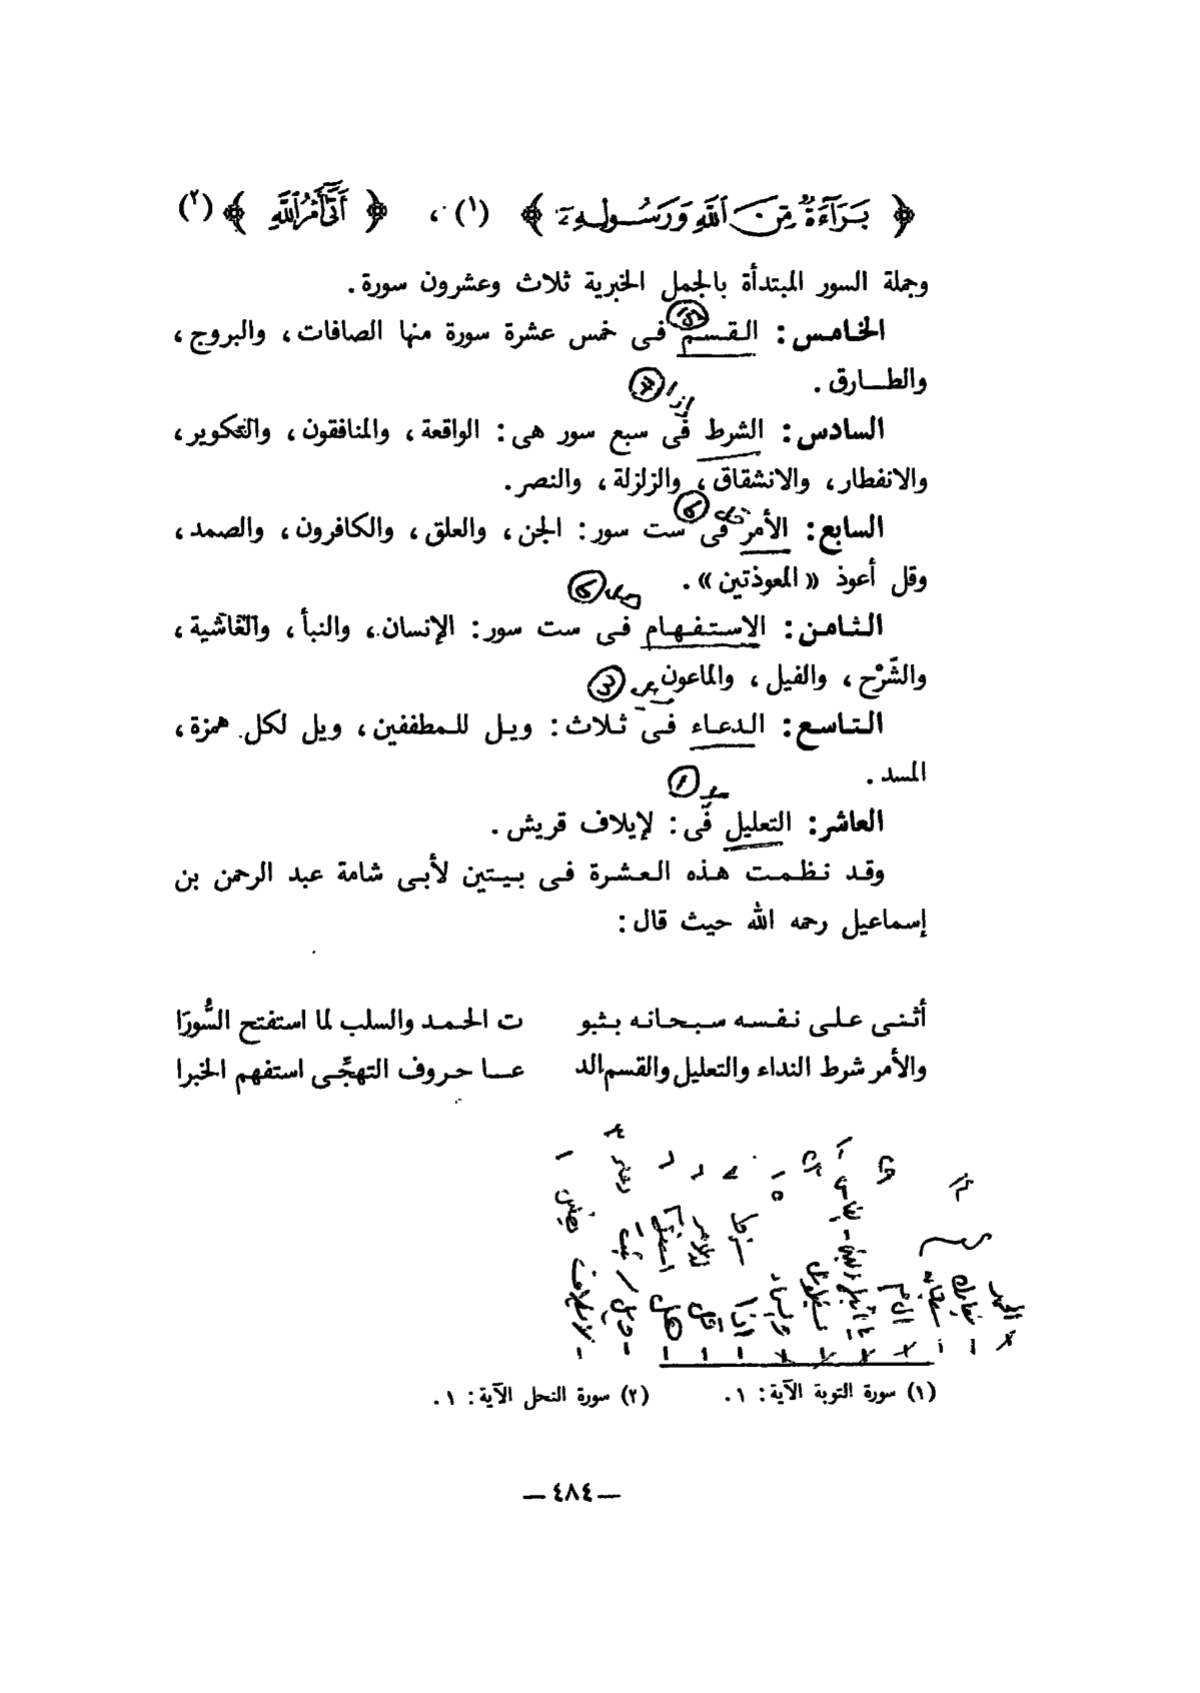 ﴿ بَرَآءَةٌ مِّنَ ٱللَّهِ وَرَسُولِهِۦٓ ﴾ (١) ، ﴿ أَتَىٰٓ أَمْرُ ٱللَّهِ ﴾ (٢)
وجملة السور المبتدأة بالجمل الخبرية ثلاث وعشرون سورة .
الخامس : القسم فى خمس عشرة سورة منها الصافات ، والبروج ،
١٥
والطارق .
إذا ٧
السادس : الشرط فى سبع سور هى : الواقعة ، والمنافقون ، والتكوير ،
والانفطار ، والانشقاق ، والزلزلة ، والنصر .
السابع : الأمر فى ست سور : الجن ، والعلق ، والكافرون ، والصمد ،
وقل أعوذ « المعوذتين » .
الثامن : الاستفهام فى ست سور : الإنسان ، والنبأ ، والغاشية ،
والشّرْح ، والفيل ، والماعون
التاسع : الدعاء فى ثلاث : ويل للمطففين ، ويل لكل همزة ،
المسد .
١
العاشر : التعليل فى : لإيلاف قريش .
وقد نظمت هذه العشرة فى بيتين لأبى شامة عبد الرحمن بن
إسماعيل رحمه الله حيث قال :
أثنى على نفسه سبحانه بثبو ت الحمد والسلب لما استفتح السُّورَا
والأمر شرط النداء والتعليل والقسم الد عا حروف التهجِّى استفهم الخبرا
(١) سورة التوبة الآية : ١ . (٢) سورة النحل الآية : ١ .
— ٤٨٤ —